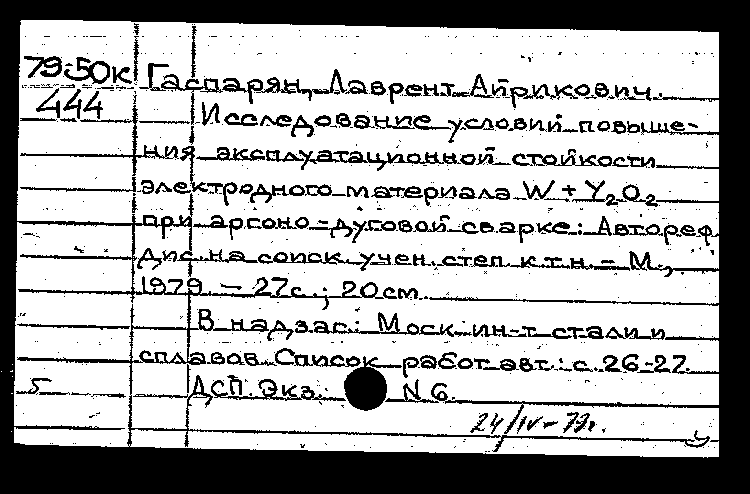 79:50к Гаспарян, Лаврент Айрикович.
444 Исследование условий повыше-
ния эксплуатационной стойкости
электродного материала W + Y2O2
при аргоно-дуговой сварке: Автореф.
дис. на соиск. учен. степ. к.т.н. - М.,
1979. - 27с.; 20см.
В надзаг.: Моск. ин-т стали и
сплавов. Список работ авт.: с. 26-27.
5 ДСП. Экз. N 6.
24/IV-79г.